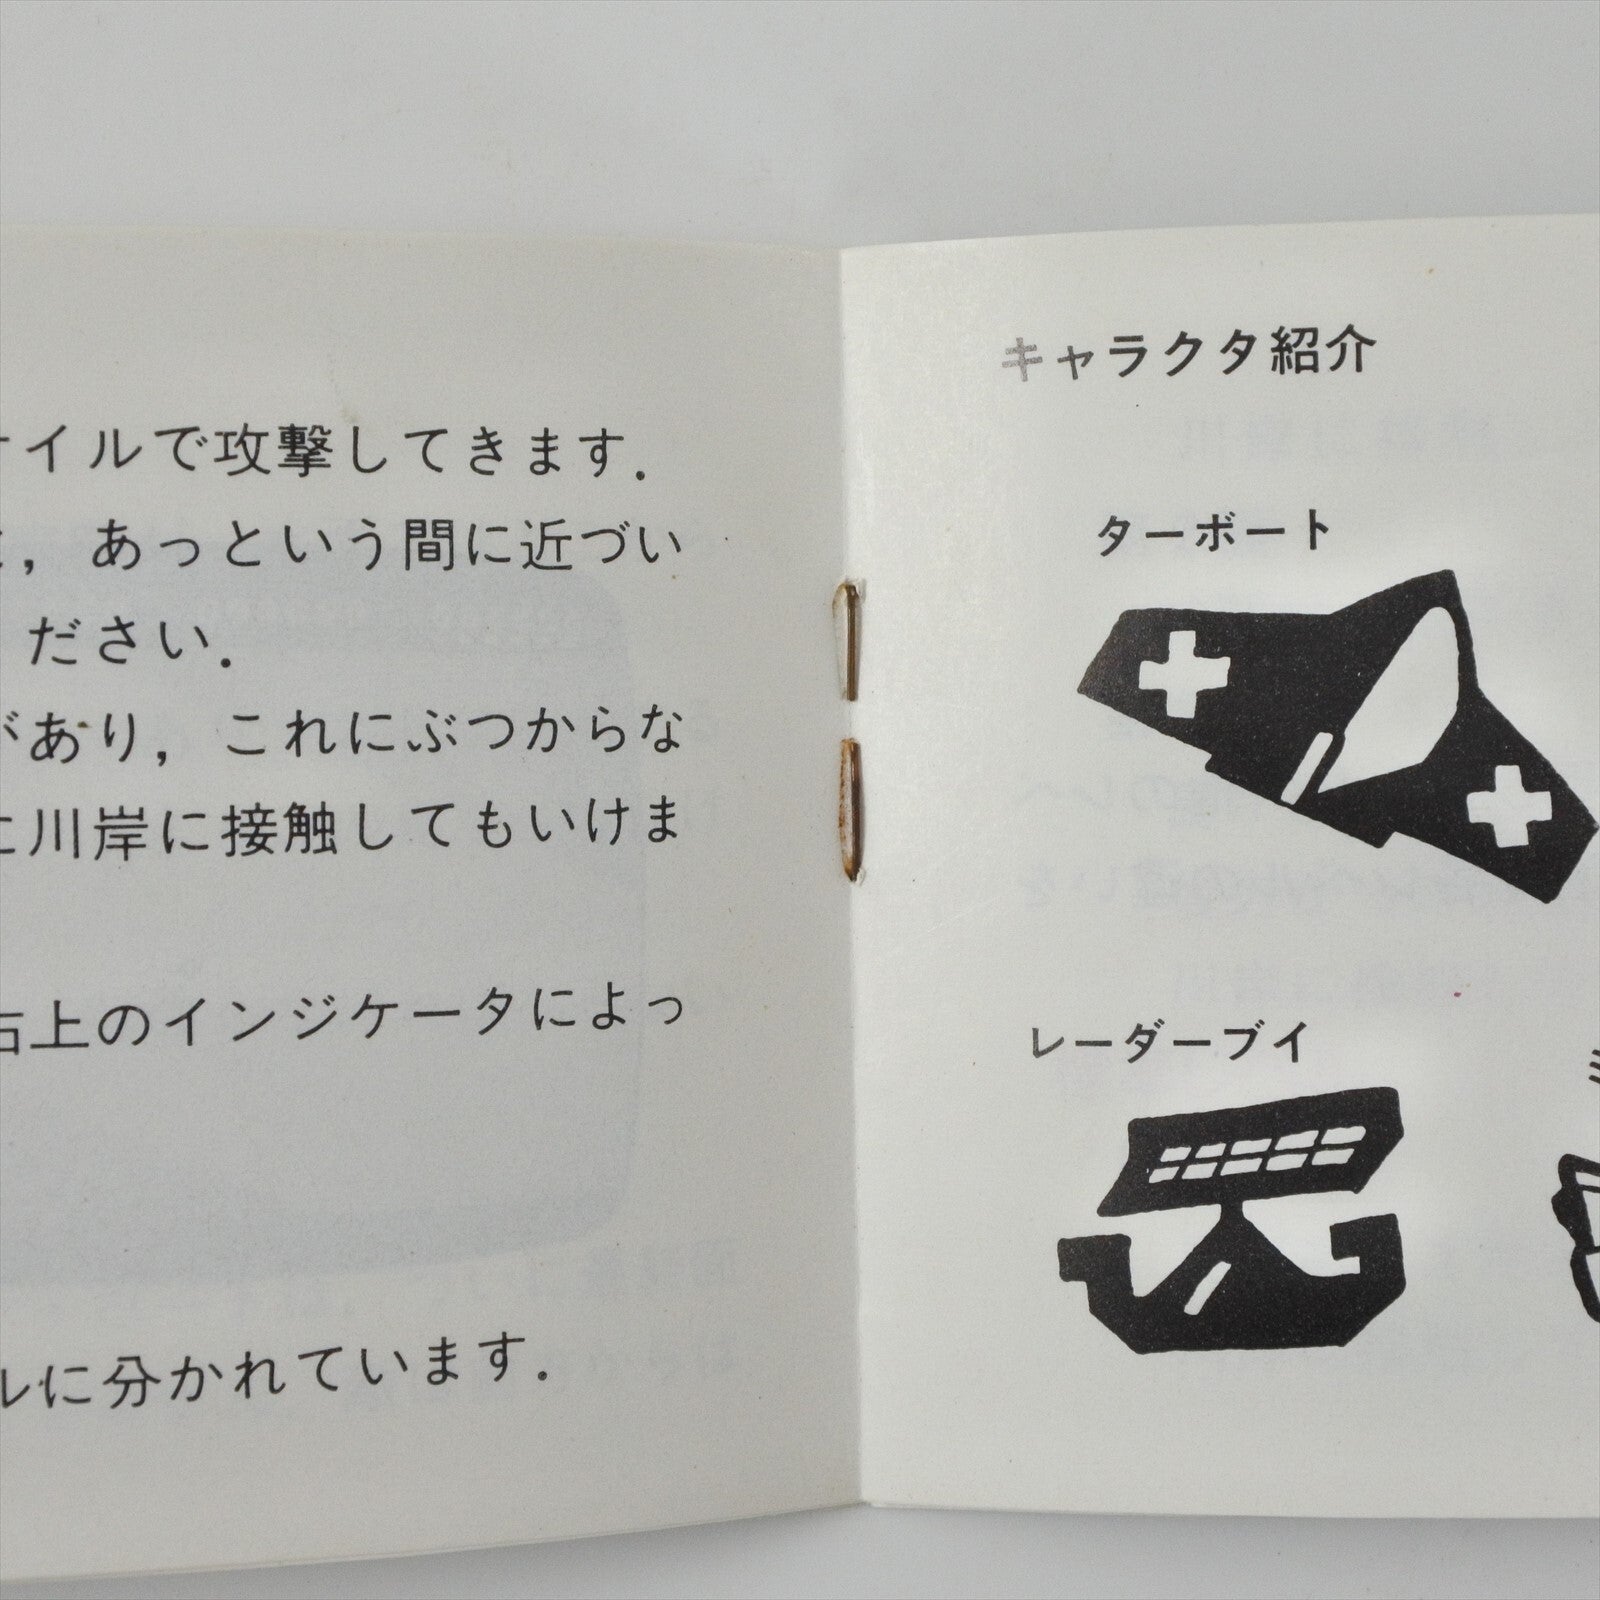 イルで攻撃してきます．
，あっという間に近づい
ください．
があり，これにぶつからな
に川岸に接触してもいけま
右上のインジケータによっ
ルに分かれています．
キャラクタ紹介
ターボート
レーダーブイ